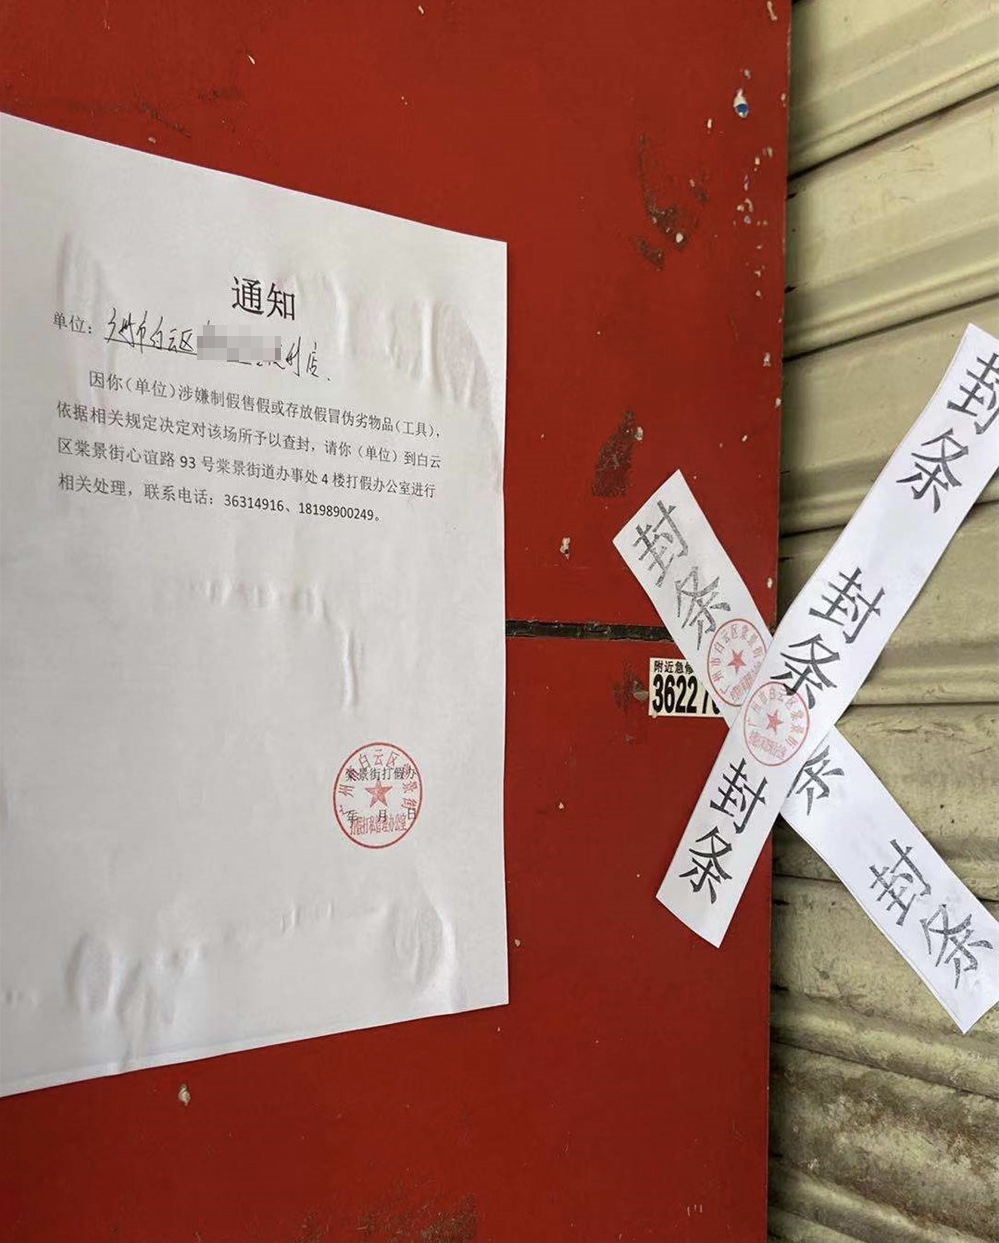 通知
单位：广州市白云区 便利店.
因你（单位）涉嫌制假售假或存放假冒伪劣物品（工具），
依据相关规定决定对该场所予以查封，请你（单位）到白云
区棠景街心谊路 93 号棠景街道办事处 4 楼打假办公室进行
相关处理，联系电话：36314916、18198900249。
棠景街打假办
年 月 日
广州市白云区棠景街
封条
附近急修
3622
封条
封条
封条
条
封条
广州市白云区棠景街
广州市白云区棠景街